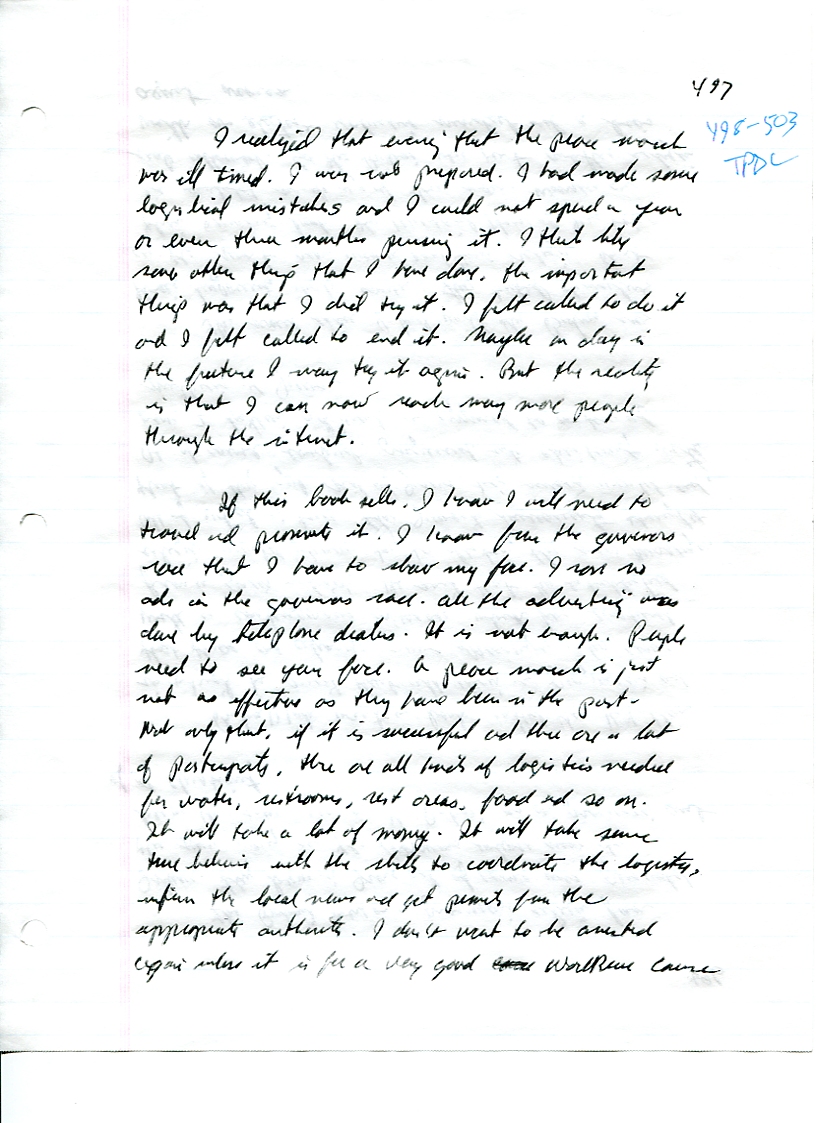 497
498-503
TPDL
I realized that evening that the peace march
was ill timed. I was not prepared. I had made some
logistical mistakes and I could not spend a year
or even three months pursuing it. I think like
some other things that I have done, the important
thing was that I did try it. I felt called to do it
and I felt called to end it. Maybe on day in
the future I may try it again. But the reality
is that I can now reach many more people
through the internet.
If this book sells, I know I will need to
travel and promote it. I know from the governors
race that I have to show my face. I ran no
ads in the governors race. All the advertising was
done by telephone . It is not enough. People
need to see your face. A peace march is just
not as effective as they have been in the past.
Not only that, if it is successful and there are a lot
of participants, there are all kinds of logistics needed
for water, restrooms, rest areas, food and so on.
It will take a lot of money. It will take some
true believers with the skills to coordinate the logistics,
inform the local news and get permits from the
appropriate authorities. I don't want to be arrested
again unless it is for a very good cause